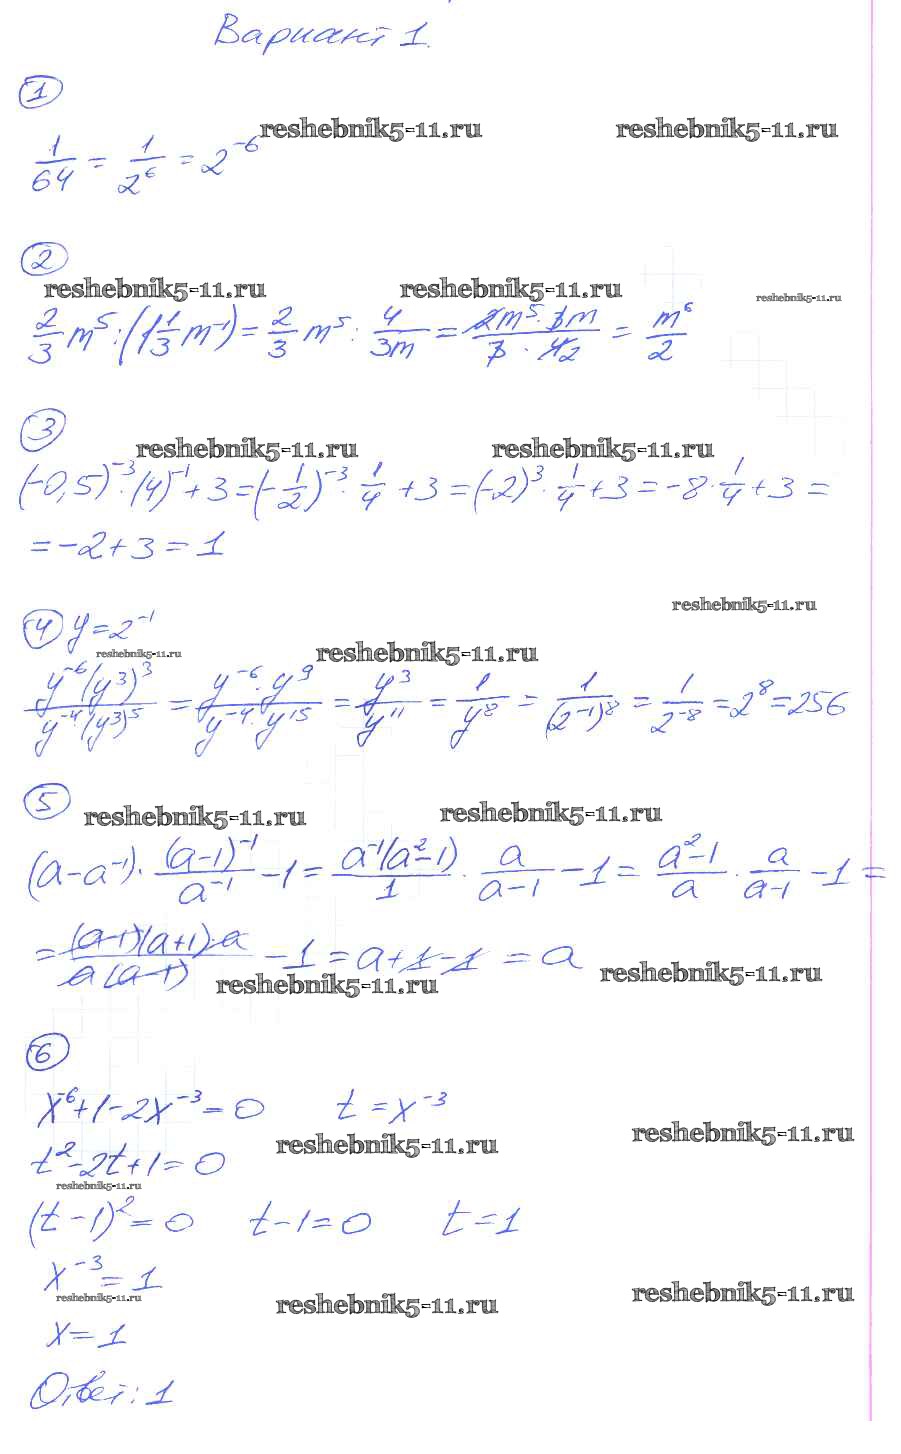 Вариант 1.
1
reshebnik5-11.ru reshebnik5-11.ru
1/64 = 1/2⁶ = 2⁻⁶
2
reshebnik5-11.ru reshebnik5-11.ru reshebnik5-11.ru
2/3 m⁵ : (1 1/3 m⁻¹) = 2/3 m⁵ : 4/3m = 2m⁵·3m/3·4 2 = m⁶/2
3
reshebnik5-11.ru reshebnik5-11.ru
(-0,5)⁻³·(4)⁻¹ + 3 = (-1/2)⁻³ · 1/4 + 3 = (-2)³ · 1/4 + 3 = -8 · 1/4 + 3 =
= -2 + 3 = 1
reshebnik5-11.ru
4 y = 2⁻¹
reshebnik5-11.ru reshebnik5-11.ru
y⁻⁶(y³)³/y⁻⁴·(y³)⁵ = y⁻⁶·y⁹/y⁻⁴·y¹⁵ = y³/y¹¹ = 1/y⁸ = 1/(2⁻¹)⁸ = 1/2⁻⁸ = 2⁸ = 256
5
reshebnik5-11.ru reshebnik5-11.ru
(a-a⁻¹)· (a-1)⁻¹/a⁻¹ - 1 = a⁻¹(a²-1)/1 · a/a-1 - 1 = a²-1/a · a/a-1 - 1 =
= (a-1)(a+1)·a/a(a-1) - 1 = a+1-1 = a
reshebnik5-11.ru reshebnik5-11.ru
6
x⁻⁶+1-2x⁻³=0 t = x⁻³
reshebnik5-11.ru reshebnik5-11.ru
t²-2t+1=0
reshebnik5-11.ru
(t-1)²=0 t-1=0 t=1
x⁻³=1
reshebnik5-11.ru reshebnik5-11.ru reshebnik5-11.ru
x=1
Ответ: 1